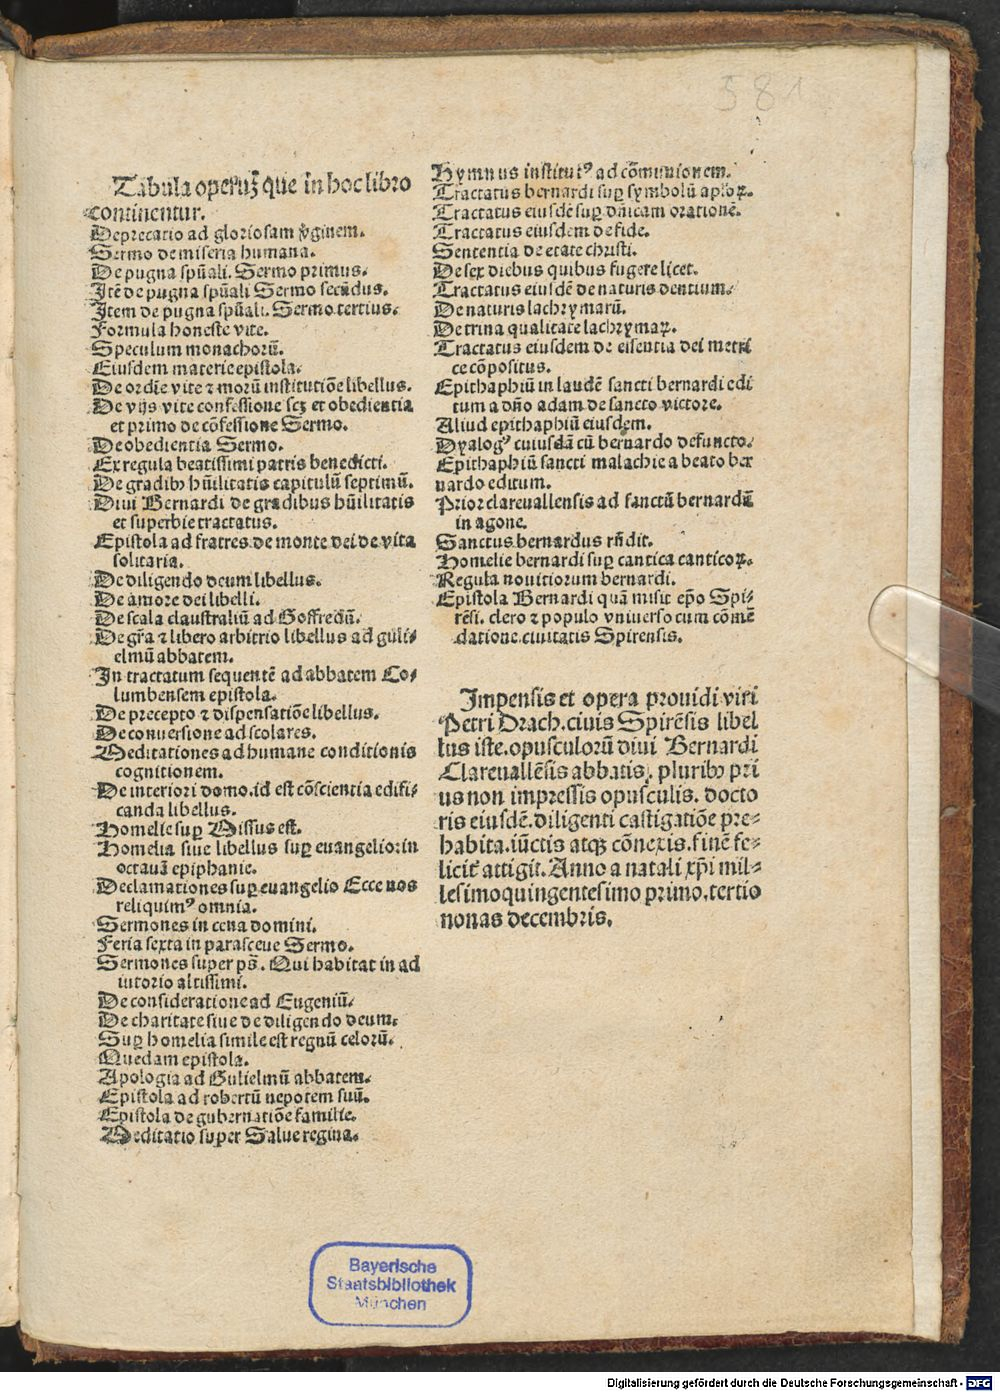 581
Tabula operuꝫ que in hoc libro
continentur.
Deprecatio ad gloriosam ꝟginem.
Sermo de miseria humana.
De pugna spūali. Sermo primus.
Itē de pugna spūali Sermo secūdus.
Item de pugna spūali. Sermo tertius.
Formula honeste vite.
Speculum monachorū.
Eiusdem materie epistola.
De ordīe vite ⁊ morū institutiōe libellus.
De vijs vite confessione scꝫ et obedientia
et primo de cōfessione Sermo.
De obedientia Sermo.
Ex regula beatissimi patris benedicti.
De gradibꝰ hūilitatis capitulū septimū.
Diui Bernardi de gradibus hūilitatis
et superbie tractatus.
Epistola ad fratres de monte dei de vita
solitaria.
De diligendo deum libellus.
De amore dei libelli.
De scala claustraliū ad Goffredū.
De gr̄a ⁊ libero arbitrio libellus ad guli⸗
elmū abbatem.
In tractatum sequentē ad abbatem Co⸗
lumbensem epistola.
De precepto ⁊ dispensatiōe libellus.
De conuersione ad scolares.
Meditationes ad humane conditionis
cognitionem.
De interiori domo. id est cōscientia edifi⸗
canda libellus.
Homelie suꝑ Missus est.
Homelia siue libellus suꝑ euangelior̄ in
octauā epiphanie.
Declamationes suꝑ euangelio Ecce nos
reliquimꝰ omnia.
Sermones in cena domini.
Feria sexta in parasceue Sermo.
Sermones super ps̄. Qui habitat in ad
iutorio altissimi.
De consideratione ad Eugeniū.
De charitate siue de diligendo deum.
Suꝑ homelia simile est regnū celorū.
Quedam epistola.
Apologia ad Gulielmū abbatem.
Epistola ad robertū nepotem suū.
Epistola de gubernatiōe familie.
Meditatio super Salue regina.
Hymnus institutꝰ ad cōmunionem.
Tractatus bernardi suꝑ symbolū aplōꝝ.
Tractatus eiusdē suꝑ dn̄icam orationē.
Tractatus eiusdem de fide.
Sententia de etate christi.
De sex diebus quibus fugere licet.
Tractatus eiusdē de naturis dentium.
De naturis lachrymarū.
De trina qualitate lachrymaꝝ.
Tractatus eiusdem de essentia dei metri
ce cōpositus.
Epithaphiū in laudē sancti bernardi edi
tum a dn̄o adam de sancto victore.
Aliud epithaphiū eiusdem.
Dyalogꝰ cuiusdā cū bernardo defuncto.
Epithaphiū sancti malachie a beato ber
nardo editum.
Prior clareuallensis ad sanctū bernardū
in agone.
Sanctus bernardus rn̄dit.
Homelie bernardi suꝑ cantica canticoꝝ.
Regula nouitiorum bernardi.
Epistola Bernardi quā misit ep̄o Spi⸗
rēsi. clero ⁊ populo vniuerso cum cōmē
datione ciuitatis Spirensis.
Impensis et opera prouidi viri
Petri Drach. ciuis Spirēsis libel
lus iste. opusculorū diui Bernardi
Clareuallēsis abbatis. pluribꝰ pri
us non impressis opusculis. docto
ris eiusdē. diligenti castigatiōe pre⸗
habita. iūctis atqꝫ cōnexis. finē fe⸗
licit̄ attigit. Anno a natali xp̄i mil⸗
lesimoquingentesimo primo. tertio
nonas decembris.
Bayerische
Staatsbibliothek
München
Digitalisierung gefördert durch die Deutsche Forschungsgemeinschaft - DFG